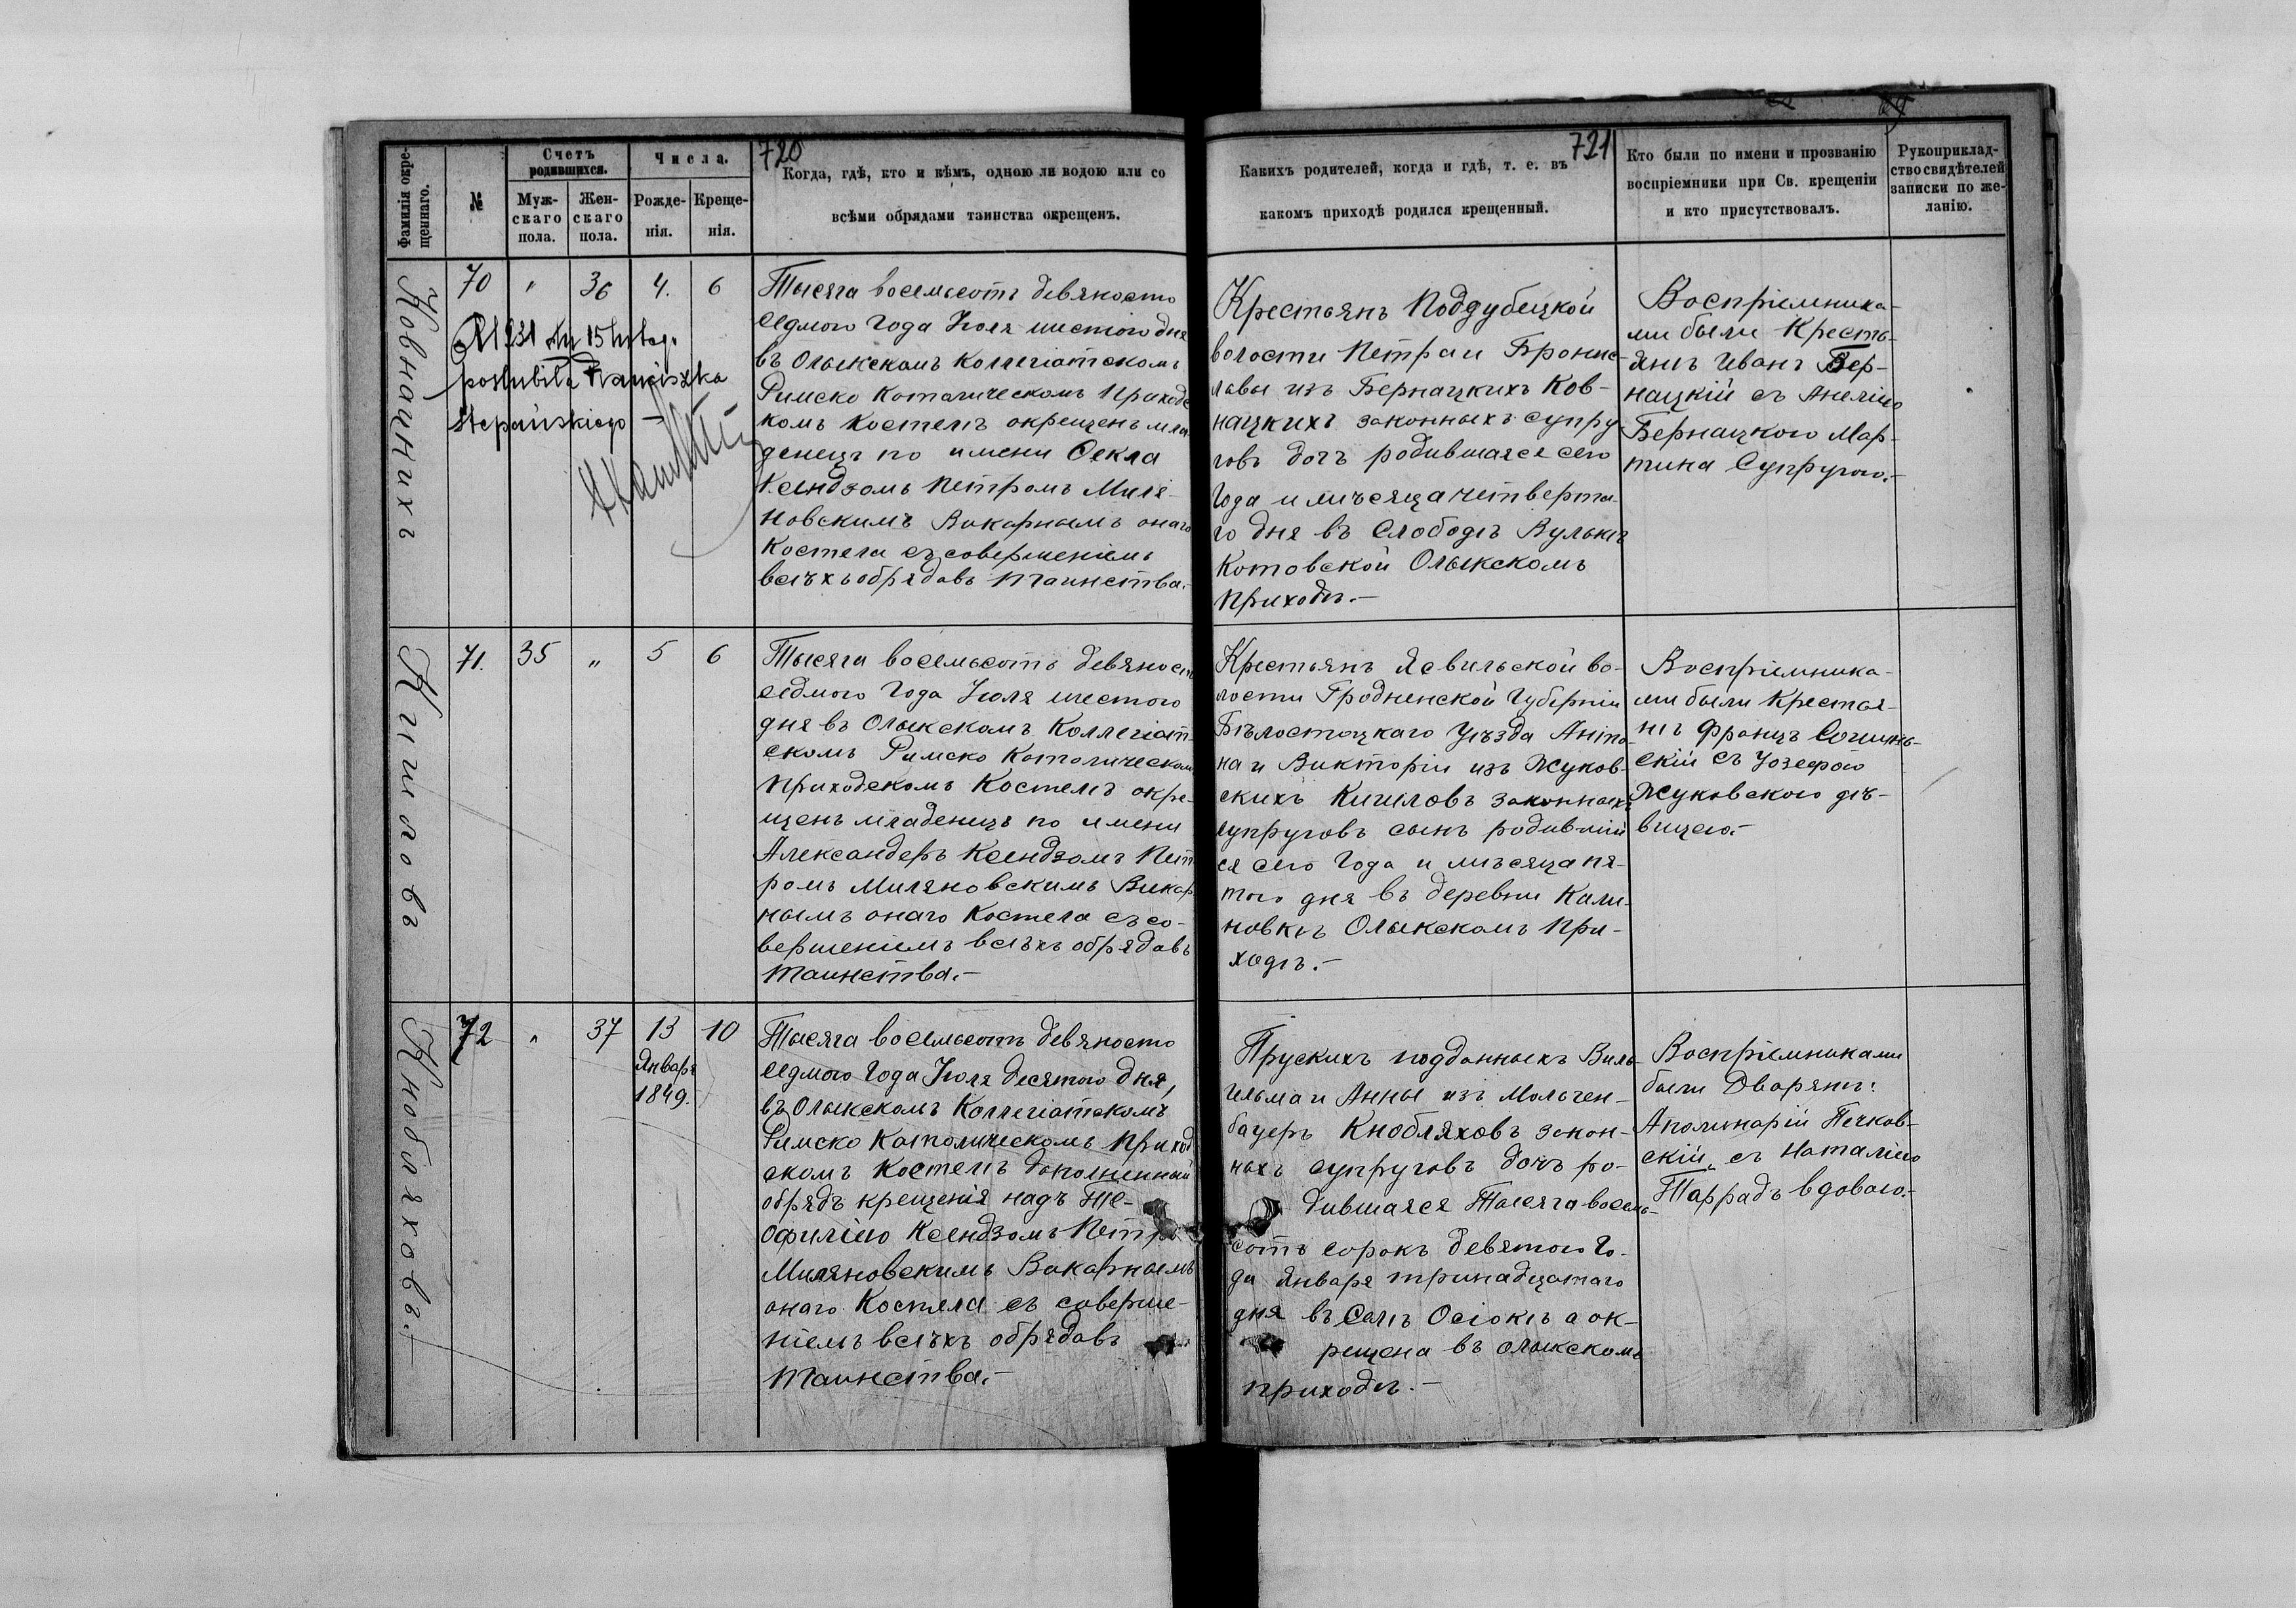 720
721
Фамилія окре-
щеннаго.
№
Счетъ
родившихся.
Муж-
скаго
пола.
Жен-
скаго
пола.
Числа.
Рожде-
нія.
Креще-
нія.
Когда, гдѣ, кто и кѣмъ, одною ли водою или со
всѣми обрядами таинства окрещенъ.
Какихъ родителей, когда и гдѣ, т. е. въ
какомъ приходѣ родился крещенный.
Кто были по имени и прозванію
воспріемники при Св. крещеніи
и кто присутствовалъ.
Рукоприклад-
ство свидѣтелей
записки по же-
ланію.
Ковнацкихъ
70 " 36 4. 6
R 1931 dn 15 lutego
poślubiła Franciszka
Stepańskiego
Тысяча восемьсотъ девяносто
седмого Года Іюля шестого дня
въ Олыкскомъ Коллегіатскомъ
Римско Католическомъ Приходс
комъ Костелѣ окрещенъ мла
денецъ по имени Θекла
Ксендзомъ Петромъ Миля-
новскимъ Викарнымъ онаго
Костела съ совершеніемъ
всѣхъ обрядовъ Таинства.-
Крестьянъ Поддубецкой
волости Петра и Бронис-
лавы изъ Бернацкихъ Ков-
нацкихъ законныхъ супру
говъ дочъ родившаяся сего
Года и мѣсяца четверта-
го дня въ Слободѣ Вулькѣ
Котовской Олыкскомъ
Приходѣ.-
Воспріемника-
ми были Кресть-
янъ Иванъ Бер-
нацкій съ Анелію
Бернацкою Мар-
тина Супругою.-
Кгиловъ
71. 35 " 5 6
Тысяча восемьсотъ девяносто
седмого Года Іюля шестого
дня въ Олыкскомъ Коллегіат-
скомъ Римско Католическомъ
Приходскомъ Костелѣ окре-
щенъ младенецъ по имени
Александеръ Ксендзомъ Пет
ромъ Миляновскимъ Викар
нымъ онаго Костела съ со-
вершеніемъ всѣхъ обрядовъ
Таинства.-
Крестьянъ Ясвильской во-
лости Гродненской Губерніи
Бѣлостоцкаго Уѣзда Анто-
на и Викторіи изъ Жуков-
скихъ Кгиловъ законныхъ
супруговъ сынъ родивший
ся сего Года и мѣсяца пя-
того дня въ деревни Кали-
новкѣ Олыкскомъ При-
ходѣ.-
Воспріемника-
ми были Крестья-
нъ Францъ
скій съ Іозефою
Жуковскою дѣ-
вицею.-
Кнобляховъ.-
72 " 37 13 10
Января
1849.
Тысяча восемьсотъ девяносто
седмого Года Іюля десятого дня,
въ Олыкскомъ Коллегіатскомъ
Римско Католическомъ Приход
скомъ Костелѣ дополненный
обрядъ крещенія надъ Те-
офилію Ксендзомъ Петро
Миляновскимъ Викарнымъ
онаго Костела съ соверше-
ніемъ всѣхъ обрядовъ
Таинства.-
Прускихъ подданныхъ Виль-
гельма и Анны изъ Мольчен-
бауеръ Кнобляховъ закон-
ныхъ супруговъ дочъ ро-
дившаяся Тысяча восемь-
сотъ сорокъ девятого Го-
да Января тринадцатаго
дня въ Селѣ Осіокѣ а ок-
рещена въ Олыкскомъ
приходѣ.-
Воспріемниками
были Дворянъ:
Аполинарій Печков-
скій съ Наталію
Таррадъ вдовою.-